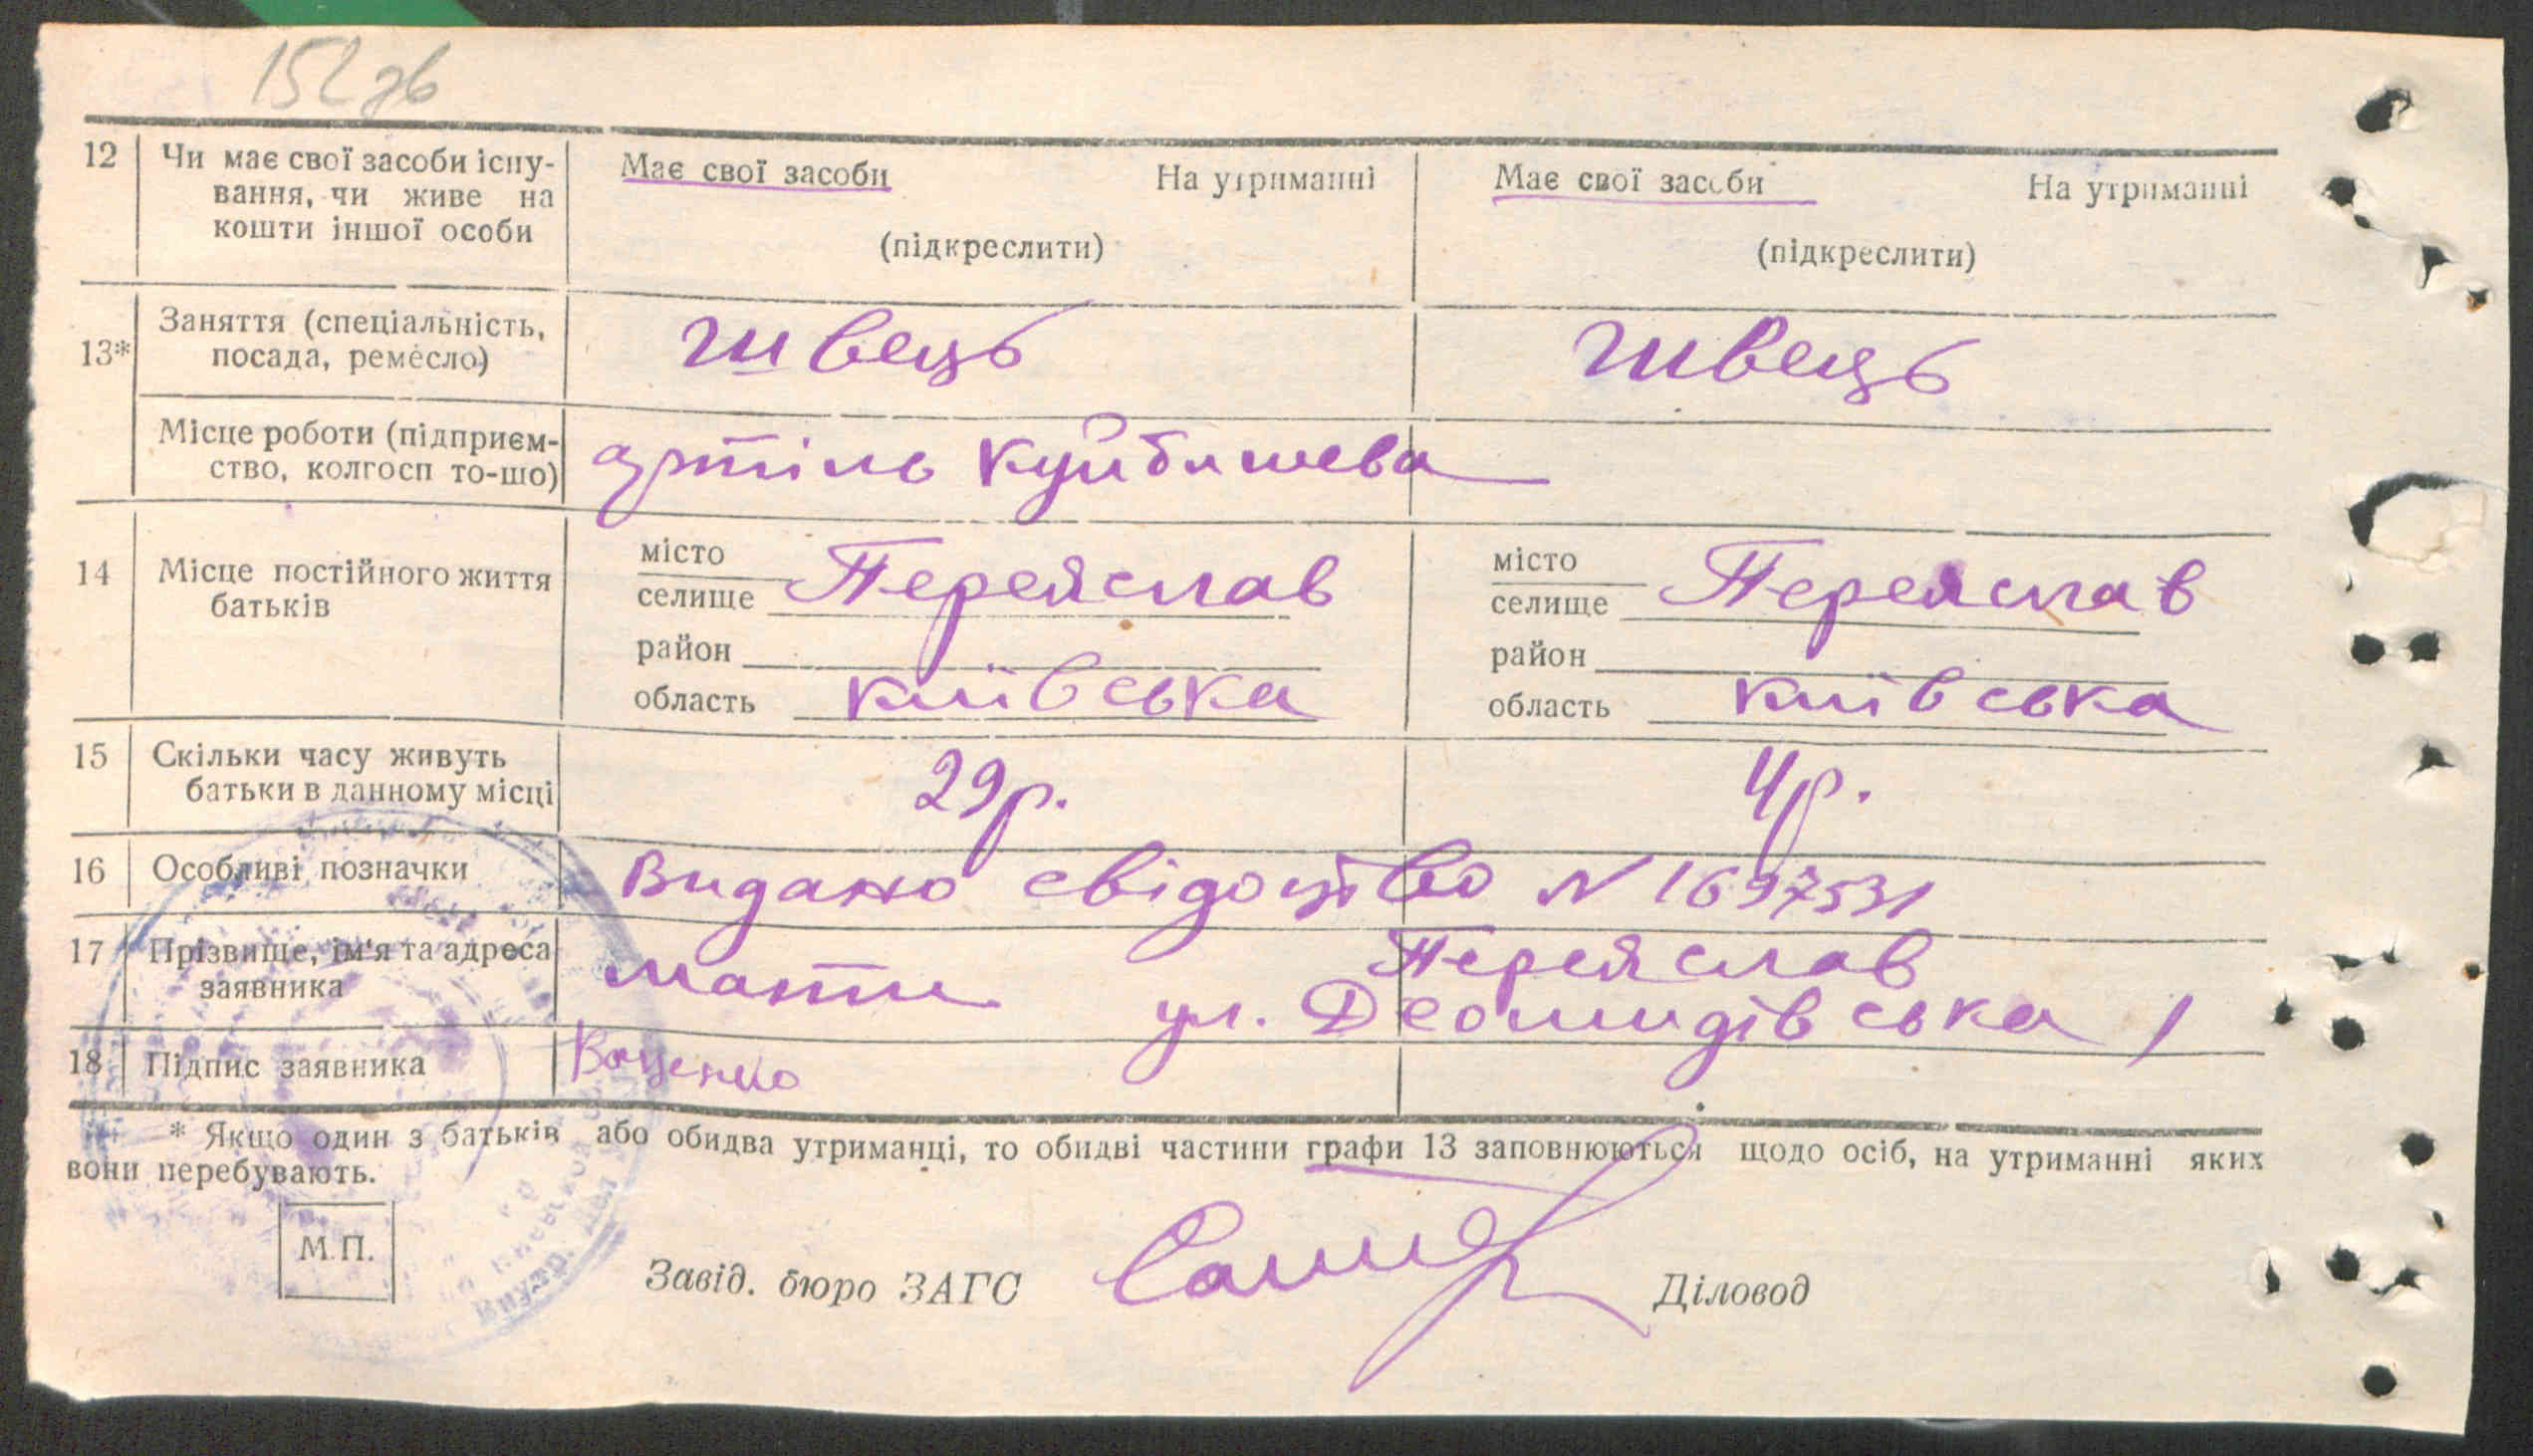 152 зв
12 Чи має свої засоби існу- Має свої засоби На утриманні Має свої засоби На утриманні
вання, чи живе на
кошти іншої особи (підкреслити) (підкреслити)
Заняття (спеціальність, швець швець
13* посада, ремесло)
Місце роботи (підприєм- артіль Куйбишева
ство, колгосп то-що)
місто місто
14 Місце постійного життя Переяслав Переяслав
батьків селище селище
район район
область київська область київська
15 Скільки часу живуть 29 р. 4 р.
батьки в данному місці
16 Особливі позначки Видано свідоцтво N 1697531
17 Прізвище, ім'я та адреса мати Переяслав
заявника ул. Деомидівська 1
18 Підпис заявника Ваценко
* Якщо один з батьків або обидва утриманці, то обидві частини графи 13 заповнюються щодо осіб, на утриманні яких
вони перебувають.
М.П.
Завід. бюро ЗАГС Діловод